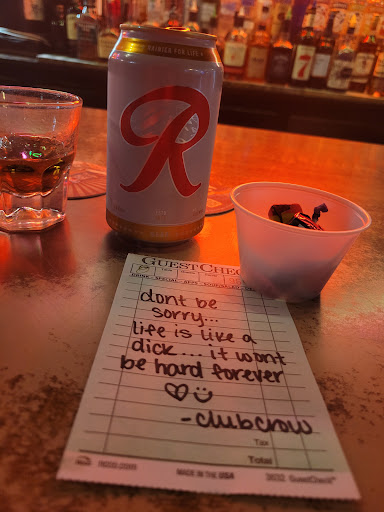 R
GUESTCHEC
dont be
sorry...
life is like a
dick.... it wont
be hard forever
♡☺
-clubcrow
Tax
Total
MADE IN THE USA
3632 GuestCheck™